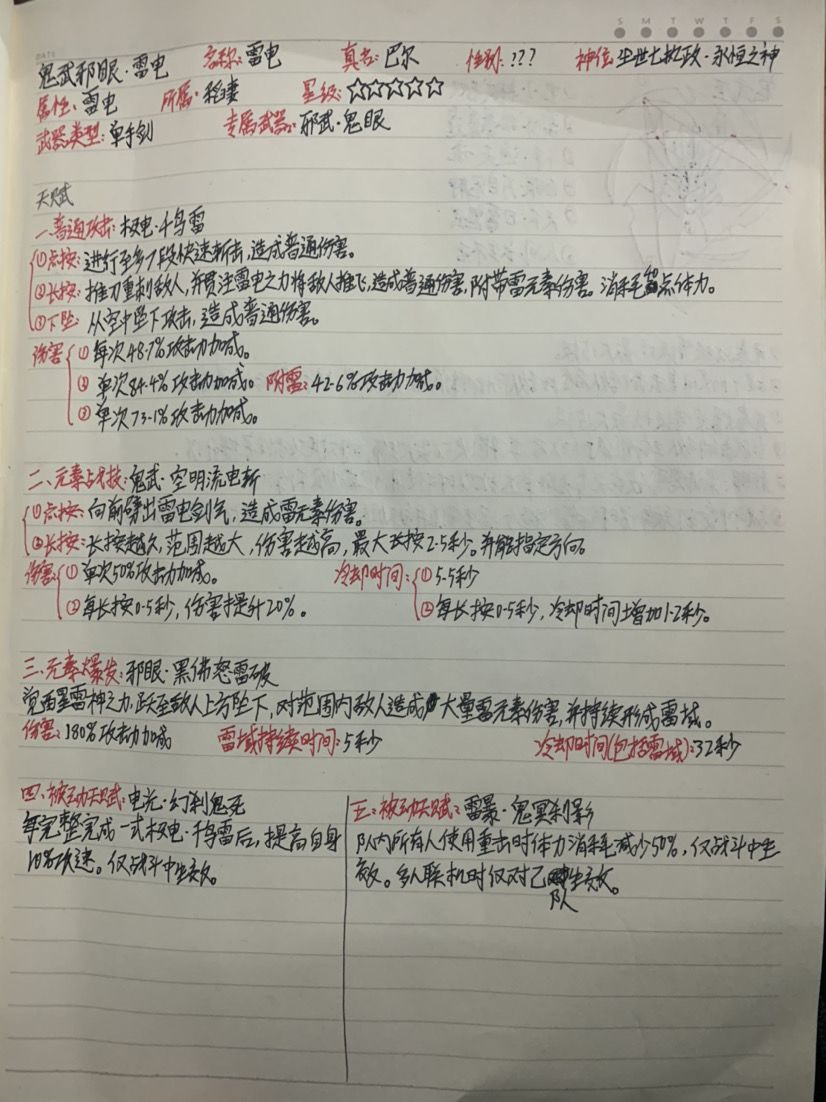 DATE
S M T W T F S
鬼武邪眼·雷电 名称:雷电 真名:巴尔 性别:??? 神位:尘世七执政·永恒之神
属性:雷电 所属:稻妻 星级:☆☆☆☆☆
武器类型:单手剑 专属武器:邪武·鬼眼
天赋
一.普通攻击:极电·千鸟雷
①点按:进行至多7段快速斩击,造成普通伤害。
②长按:推刀重刺敌人,并贯注雷电之力将敌人推飞,造成普通伤害,附带雷元素伤害。消耗毛点体力。
③下坠:从空中坠下攻击,造成普通伤害。
伤害 ①每次48.7%攻击力加成。
②单次84.4%攻击力加成。附雷:42.6%攻击力加成。
③单次73.1%攻击力加成。
二.元素战技:鬼武·空明流电斩
①点按:向前劈出雷电剑气,造成雷元素伤害。
②长按:长按越久,范围越大,伤害越高,最大长按2.5秒。并能指定方向。
伤害:①单次50%攻击力加成。 冷却时间:①5.5秒
②每长按0.5秒,伤害提升20%。 ②每长按0.5秒,冷却时间增加1.2秒。
三.元素爆发:邪眼·黑佛怒雷破
觉醒雷神之力,跃至敌人上方坠下,对范围内敌人造成大量雷元素伤害,并持续形成雷域。
伤害:180%攻击力加成 雷域持续时间:5秒 冷却时间(包括雷域):32秒
四.被动天赋:电光·幻刹鬼死
每完整完成一式极电·千鸟雷后,提高自身
10%攻速。仅战斗中生效。
五.被动天赋:雷暴·鬼冥刹影
队内所有人使用重击时体力消耗减少50%,仅战斗中生
效。多人联机时仅对己队生效。